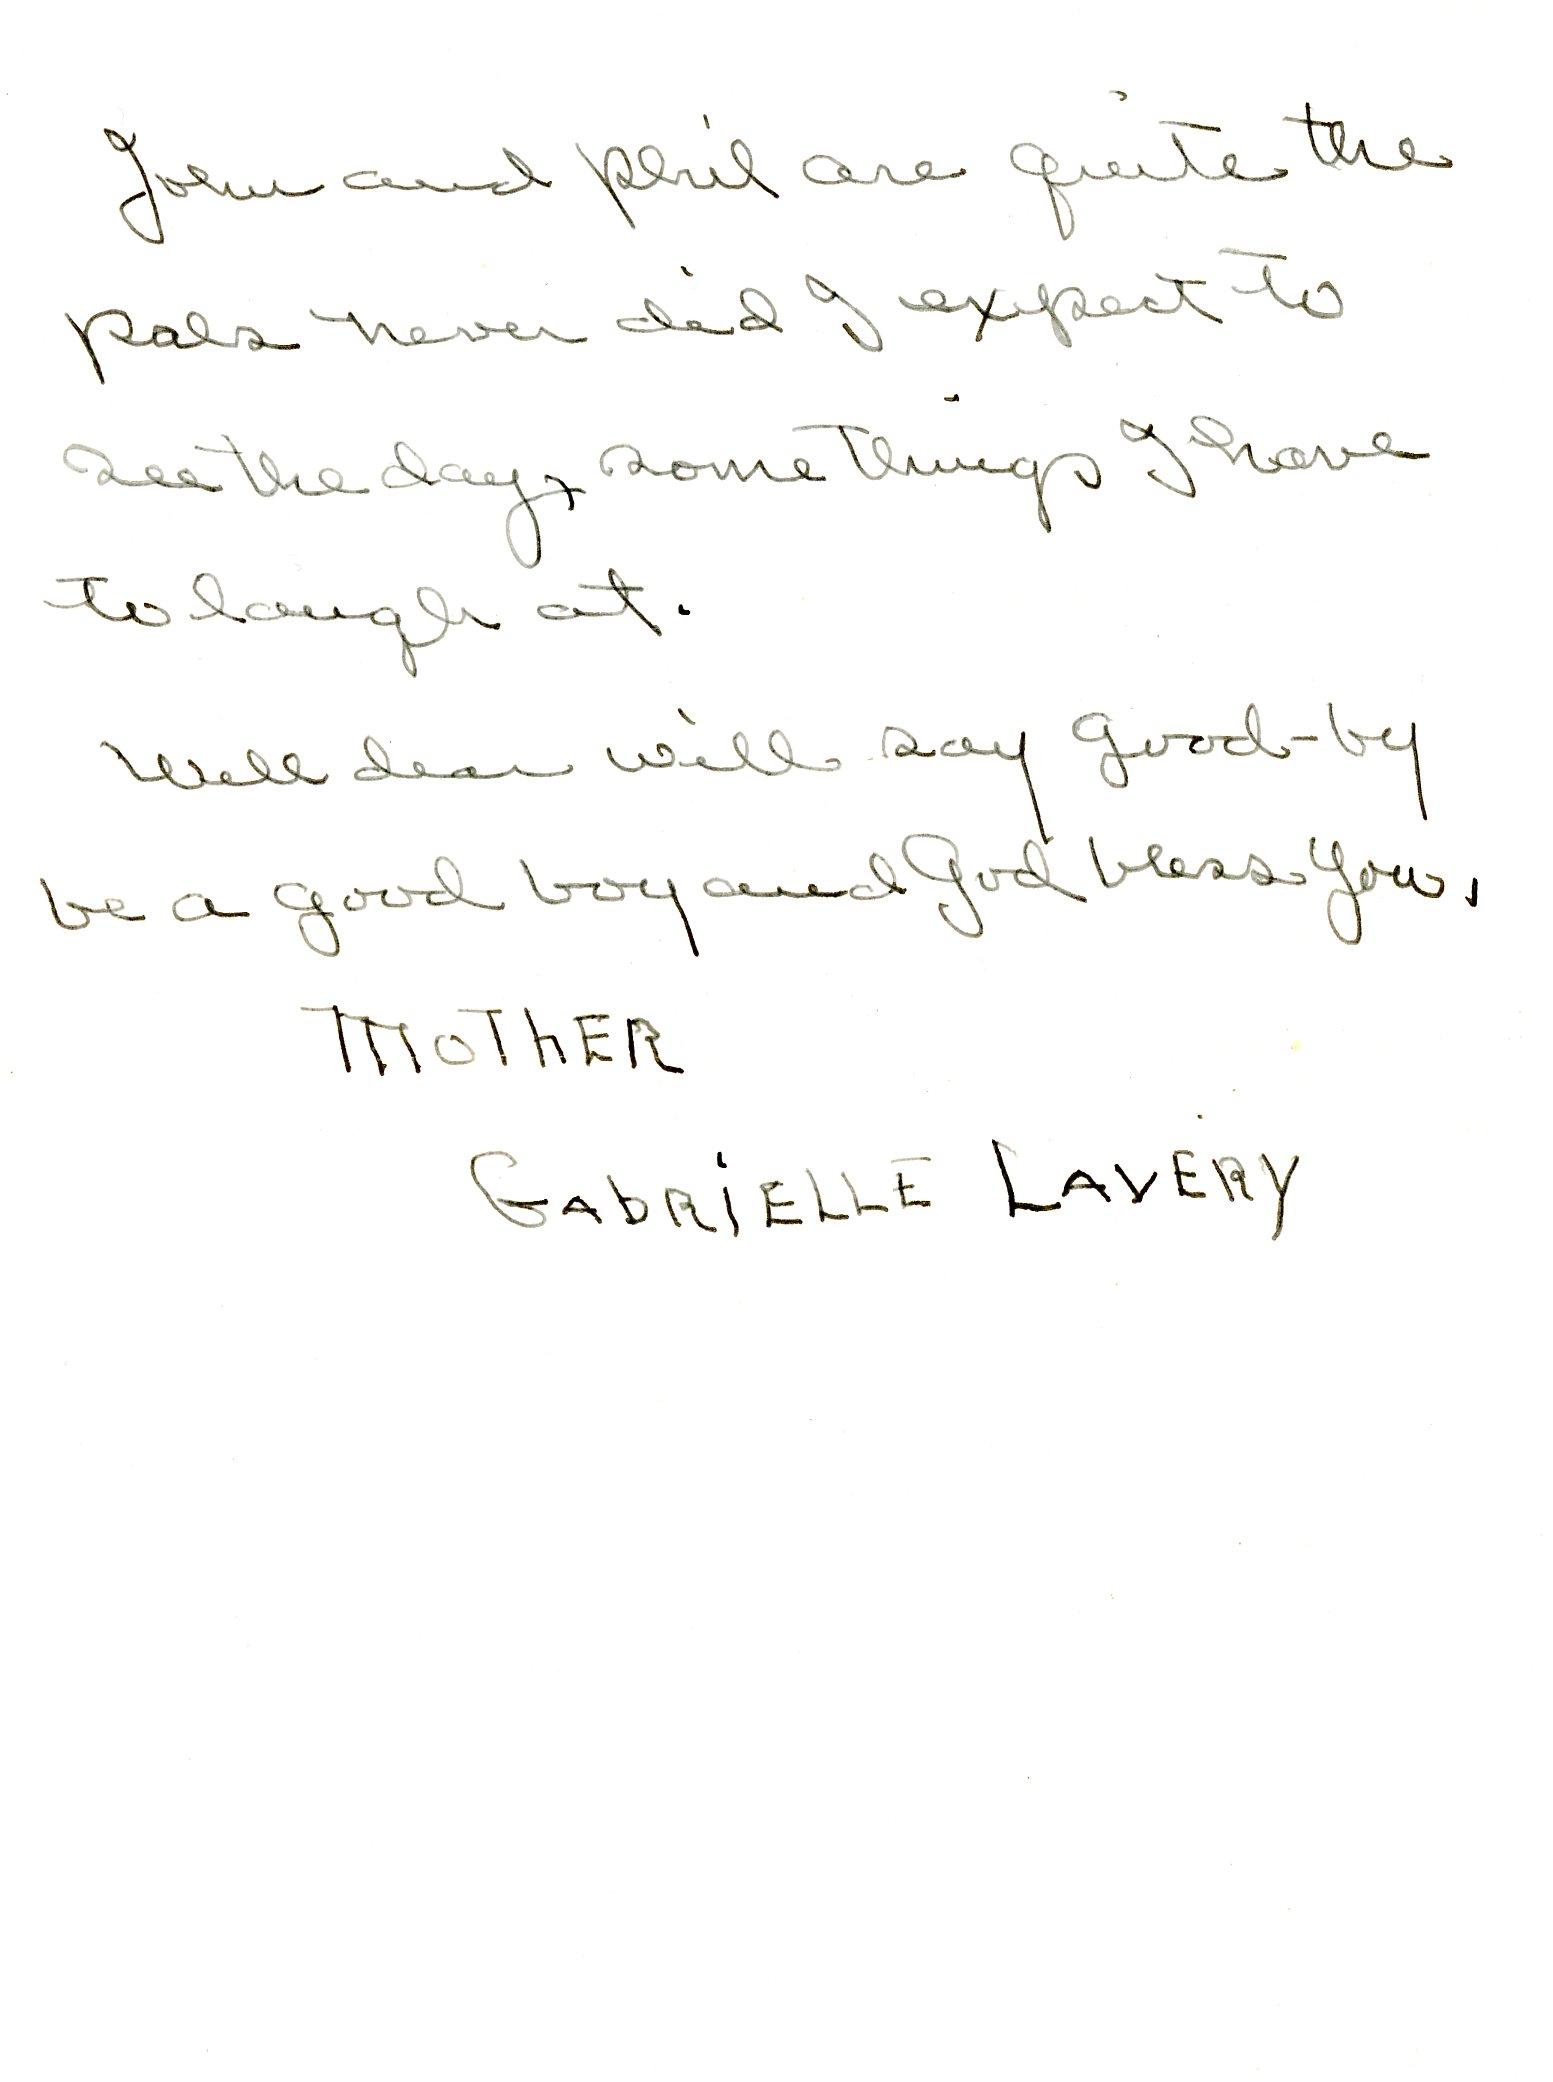 John and phil are quite the
pals never did I expect to
see the day, some things I have
to laugh at.
Well dear will say good-by
be a good boy and God bless you.
MOThER
GAbRiELLE LAVERY